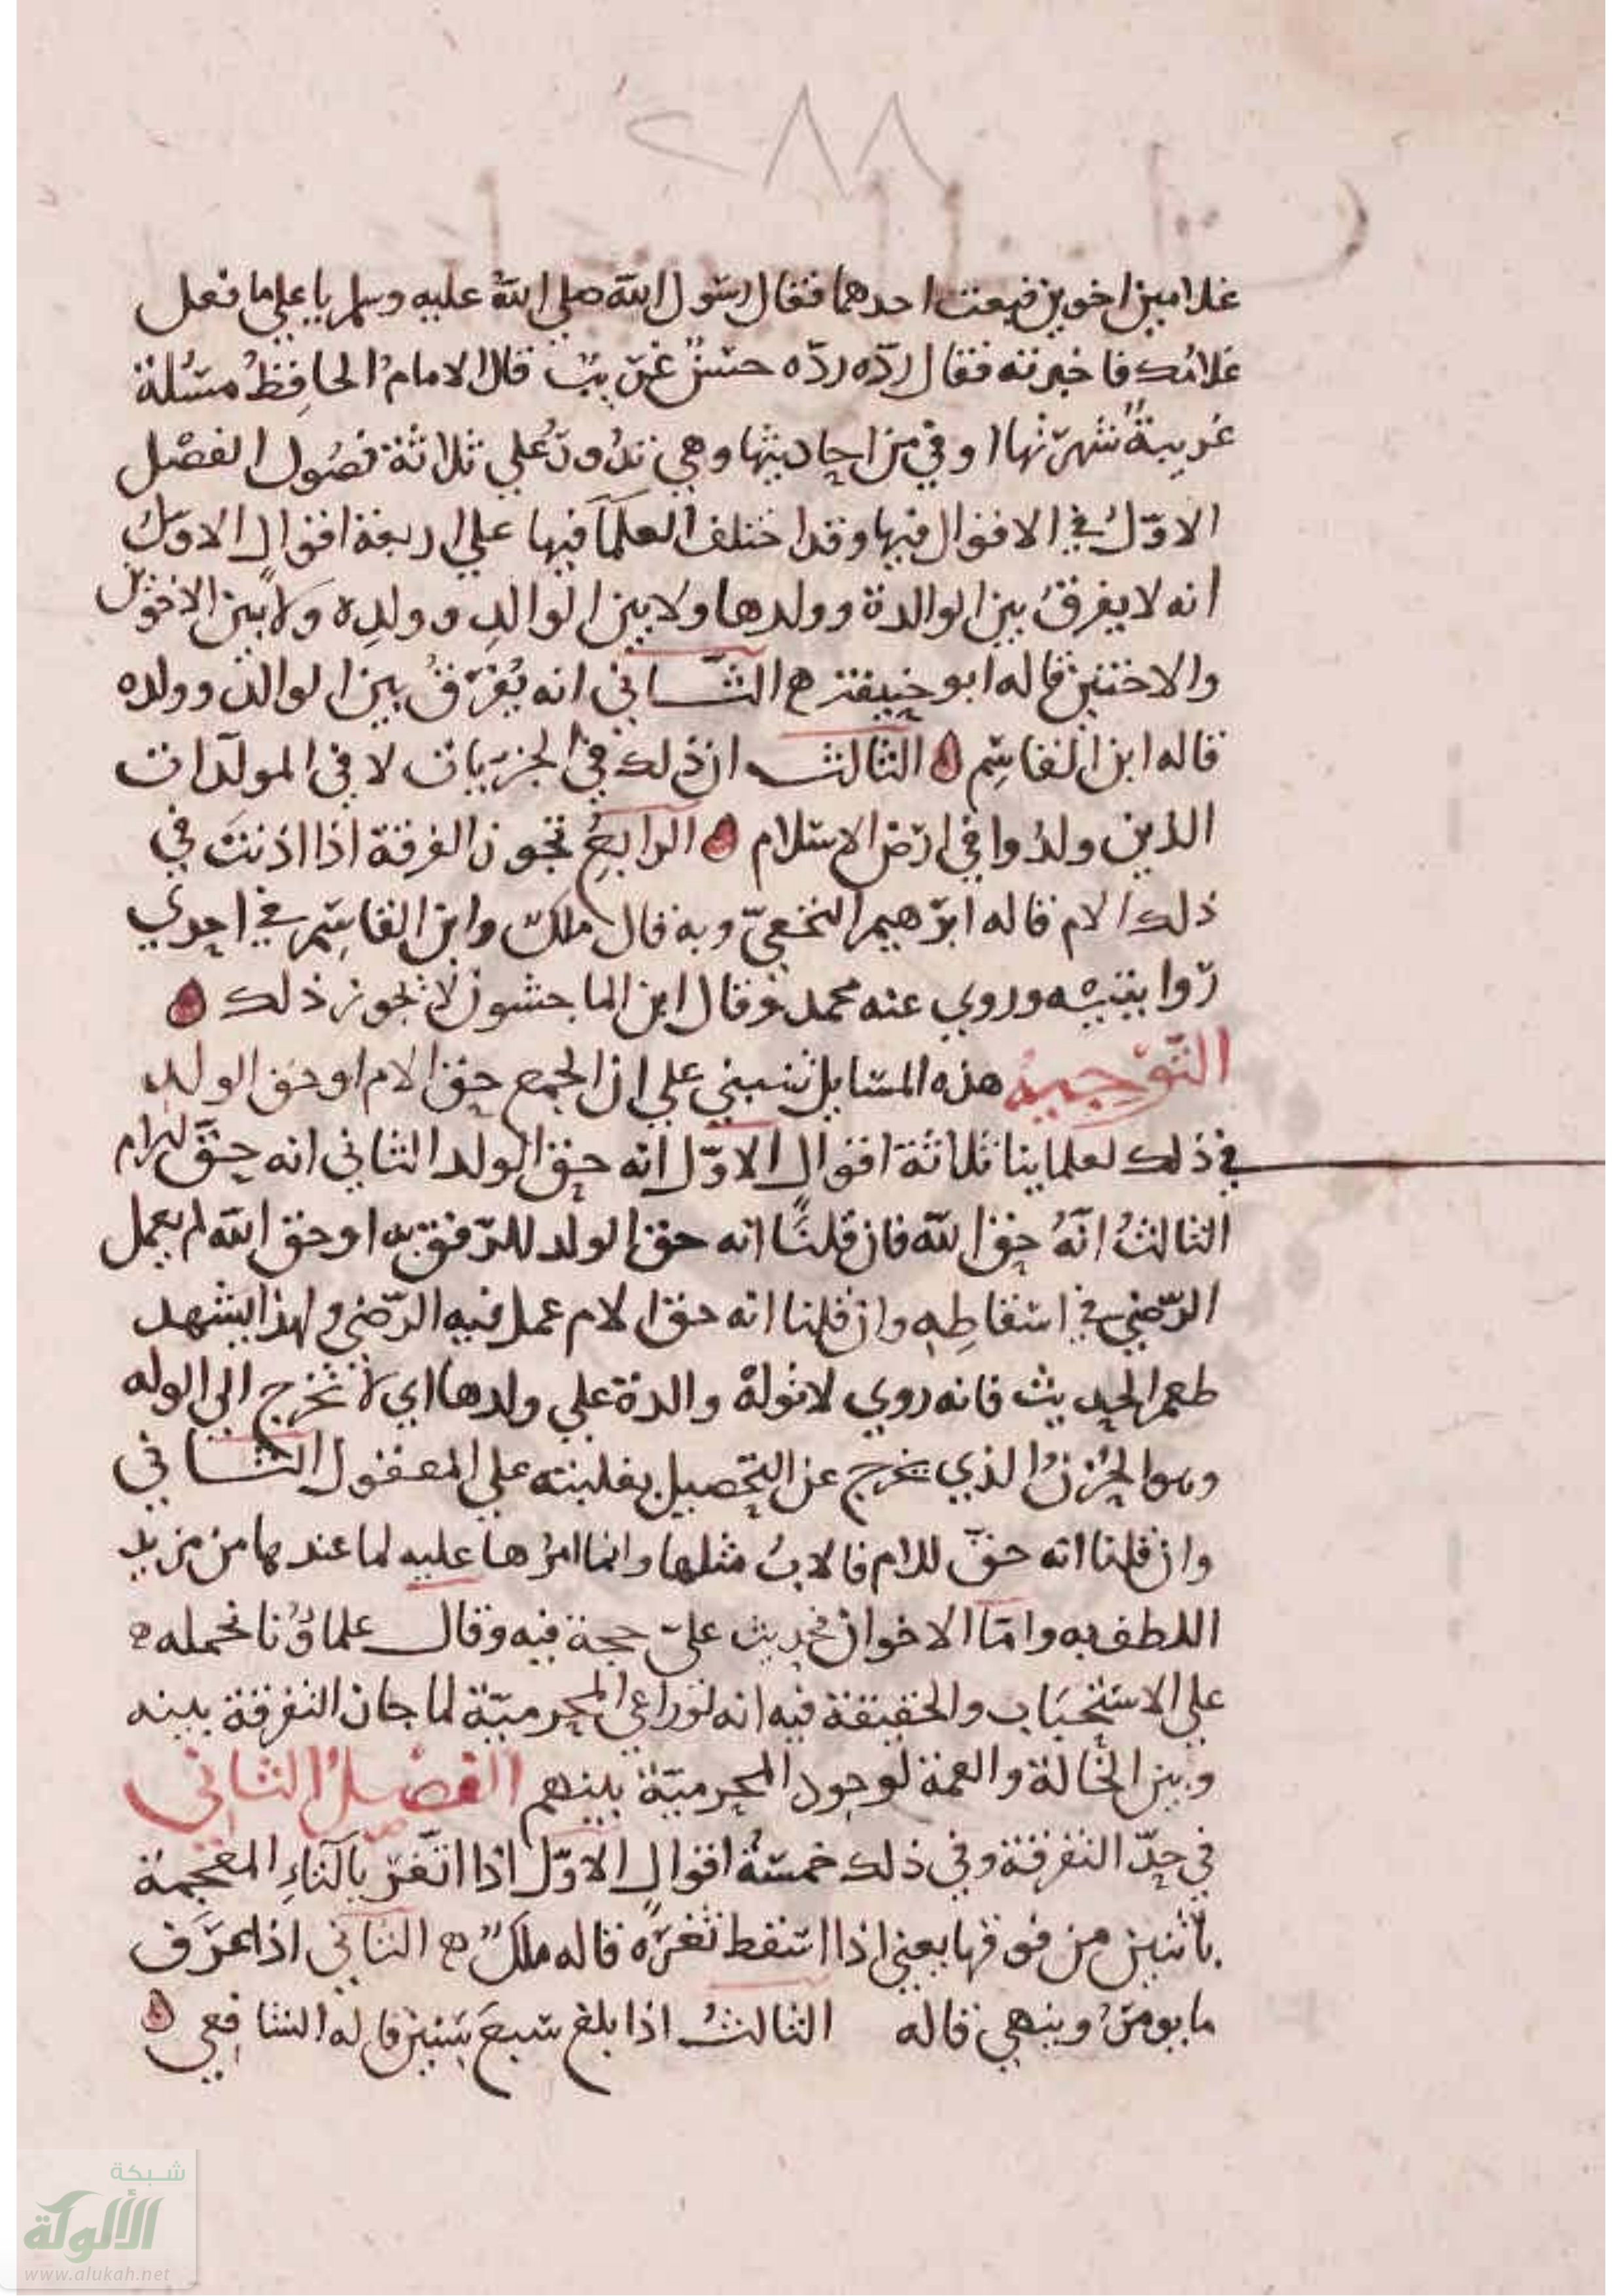 ٢٨٨
غلامين اخوين فبعت احدهما فقال رسول الله صلي الله عليه وسلم يا علي ما فعل
غلامك فاخبرته فقال ردّه ردّه حسن غريب قال الامام الحافظ مسئلة
غريبة شهرتها اوفي من احاديثها وهي تدور علي ثلاثة فصول الفصل
الاوّل في الاقوال فيها وقد اختلف العلما فيها علي اربعة اقوال الاول
انه لا يفرق بين الوالدة وولدها ولا بين الوالد وولده ولا بين الاخوين
والاختين قاله ابو حنيفة ه الثاني انه يُفرّق بين الوالد وولده
قاله ابن القاسم ه الثالث ان ذلك في الحربيات لا في المولدات
الذين ولدوا في ارض الاسلام ه الرابع تجوز الفرقة اذا اذنت في
ذلك الام قاله ابرهيم النخعيّ وبه قال ملك وابن القاسم في احدي
روايتيه وروي عنه محمد وقال ابن الماجشون لا يجوز ذلك ه
التوجيه هذه المسايل تنبني علي ان الجمع حق الام او حق الولد
في ذلك لعلماينا ثلاثة اقوال الاوّل انه حق الولد الثاني انه حق للام
الثالث انّهُ حق الله فان قلنا انه حق الولد للرفق به او حق الله لم يعمل
الرّضي في اسقاطه وان قلنا انه حق الام عمل فيه الرّضي ولهذا يشهد
طعم الحديث فانه روي لا توله والدة علي ولدها اي لا تخرج الي الوله
وهو الحزن الذي يخرج عن التحصيل بغلبته علي المعقول الثاني
وان قلنا انه حق للام فالاب مثلها وانما امرها عليه لما عندها من مزيد
اللطف به وامّا الاخوان فحديث عليّ حجة فيه وقال علماؤنا نحمله ه
علي الاستحباب والحقيقة فيه انه لو راعي المحرميّة لما جاز التفرقة بينه
وبين الخالة والعمة لوجود المحرميّة بينهم الفصل الثاني
في حدّ التفرقة وفي ذلك خمسة اقوال الاوّل اذا اتّغر بالتاء المعجمة
باثنين من فوقها يعني اذا اسقط ثغره قاله ملك ه الثاني اذا عرف
ما يومر وينهي قاله الثالث اذا بلغ سبع سنين قاله الشافعي ه
شبكة
الألوكة
www.alukah.net